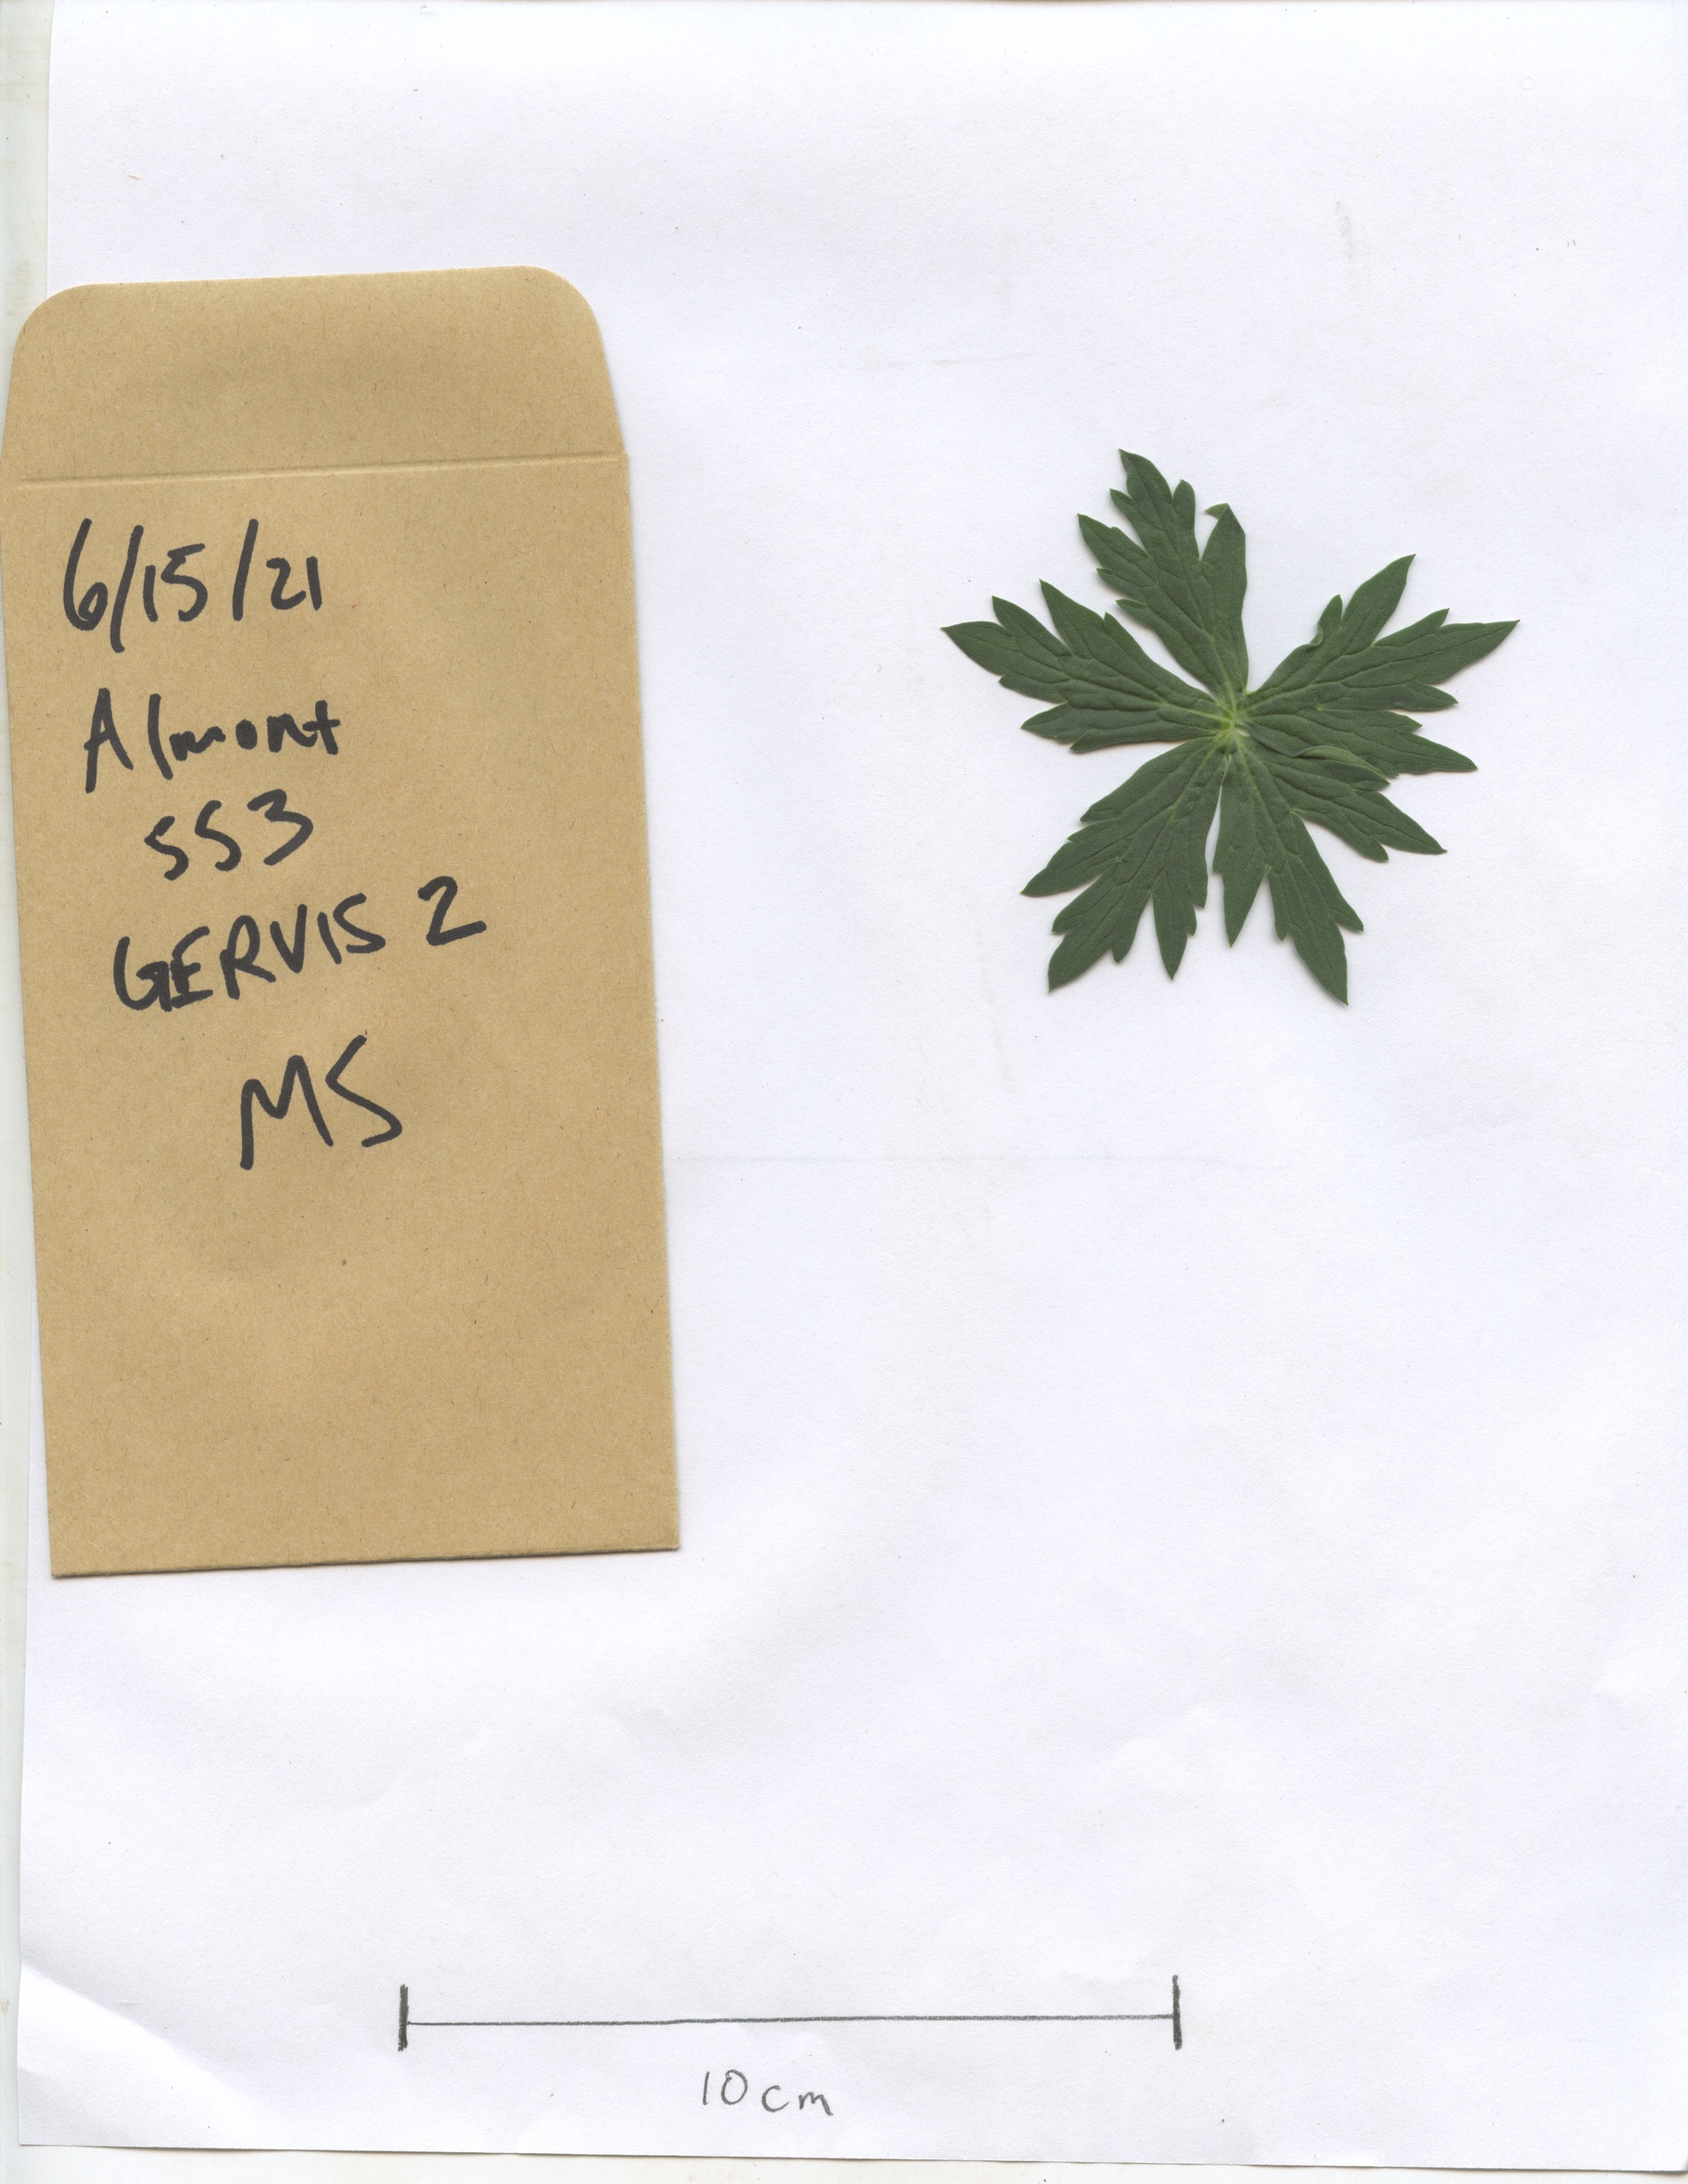 6/15/21
Almont
SS3
GERVIS 2
MS
10cm